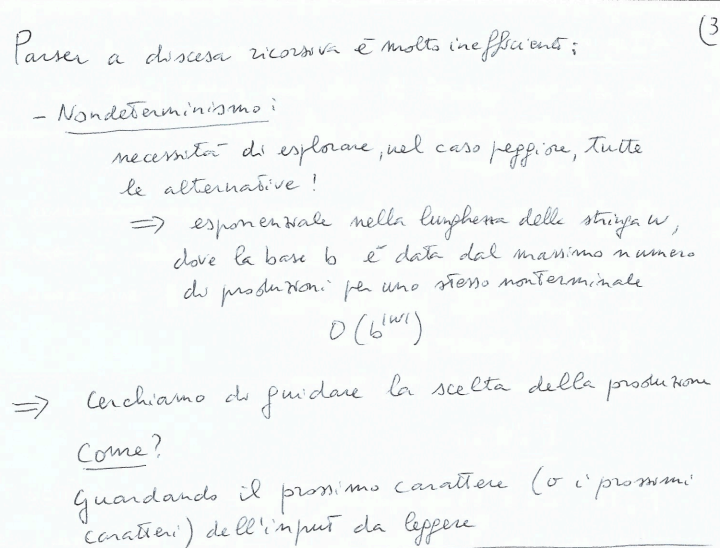 (3
Parser a discesa ricorsiva è molto inefficiente:
- Nondeterminismo:
necessità di esplorare, nel caso peggiore, tutte
le alternative!
⇒ esponenziale nella lunghezza della stringa w,
dove la base b è data dal massimo numero
di produzioni per uno stesso nonterminale
O(b^|w|)
⇒ Cerchiamo di guidare la scelta della produzione
Come?
Guardando il prossimo carattere (o i prossimi
caratteri) dell'input da leggere